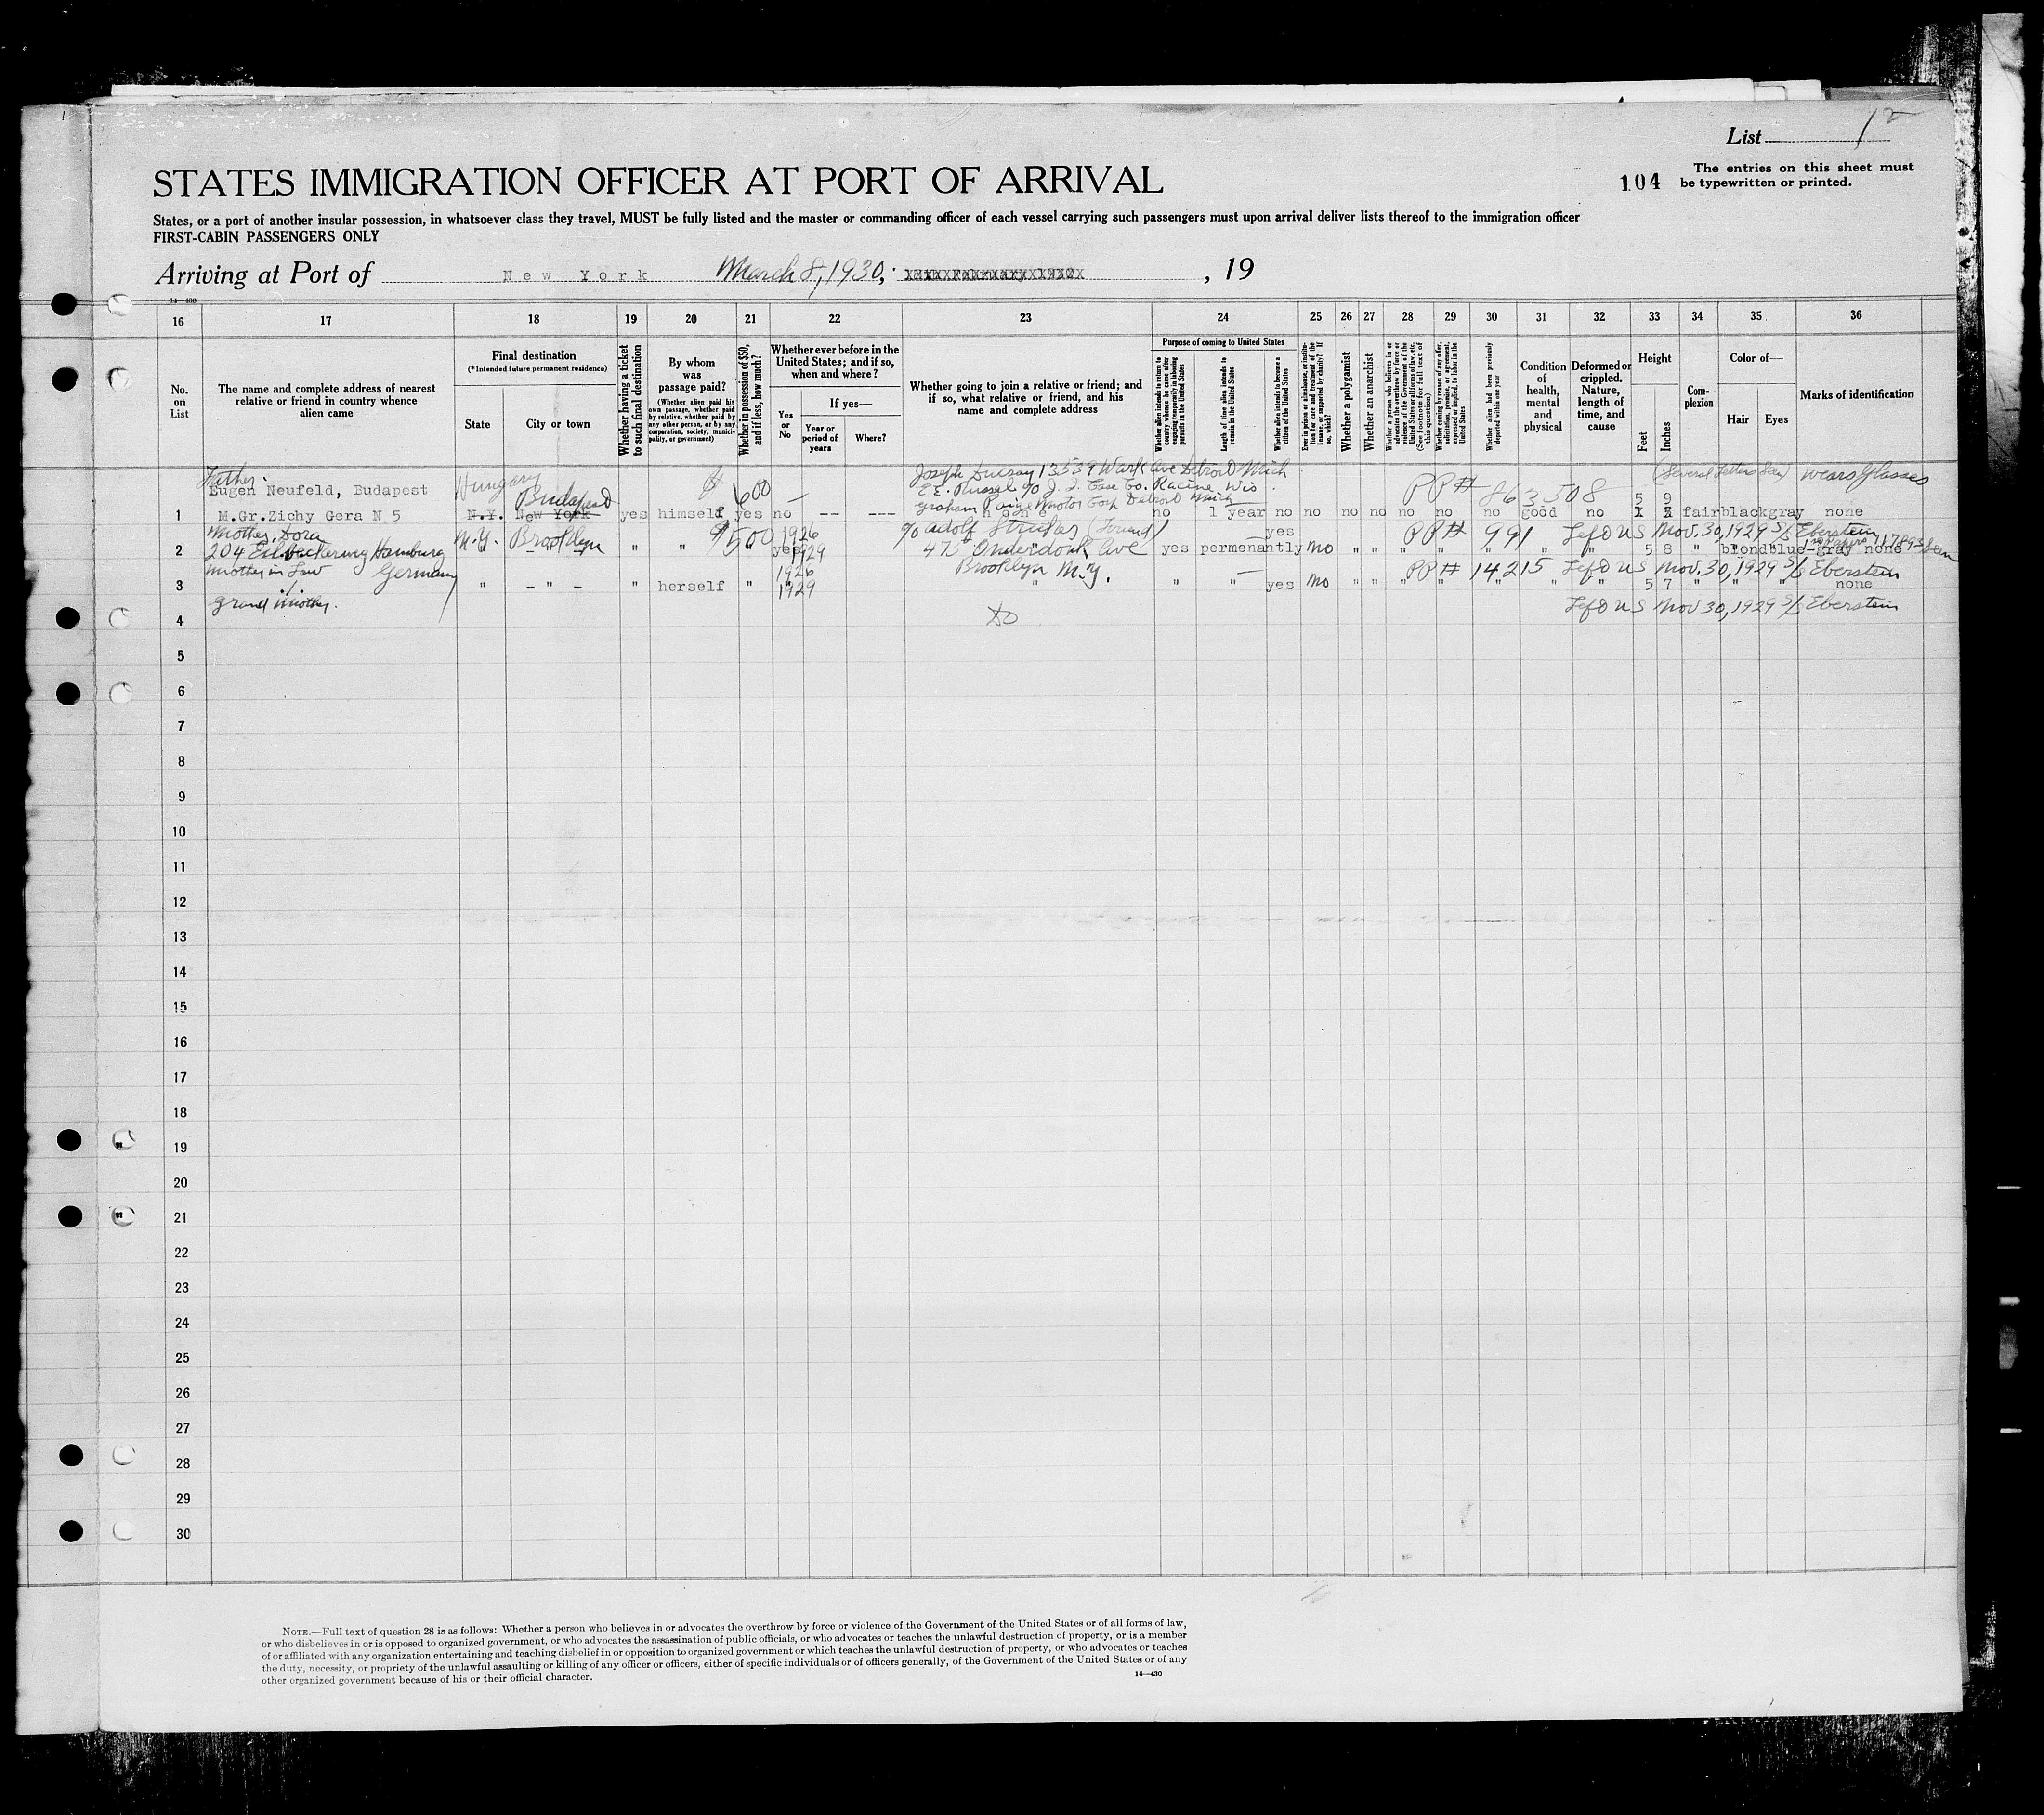 List 12
STATES IMMIGRATION OFFICER AT PORT OF ARRIVAL
104
The entries on this sheet must
be typewritten or printed.
States, or a port of another insular possession, in whatsoever class they travel, MUST be fully listed and the master or commanding officer of each vessel carrying such passengers must upon arrival deliver lists thereof to the immigration officer
FIRST-CABIN PASSENGERS ONLY
Arriving at Port of New York March 8, 1930, , 19
14—430
16 17 18 19 20 21 22 23 24 25 26 27 28 29 30 31 32 33 34 35 36
No. on List
The name and complete address of nearest relative or friend in country whence alien came
Final destination
(*Intended future permanent residence)
State
City or town
Whether having a ticket to such final destination
By whom was passage paid?
(Whether alien paid his own passage, whether paid by relative, whether paid by any other person, or by any corporation, society, municipality, or government)
Whether in possession of $50, and if less, how much?
Whether ever before in the United States; and if so, when and where?
Yes or No
If yes—
Year or period of years
Where?
Whether going to join a relative or friend; and if so, what relative or friend, and his name and complete address
Purpose of coming to United States
Whether alien intends to return to country whence he came after engaging temporarily in laboring pursuits in the United States
Length of time alien intends to remain in the United States
Whether alien intends to become a citizen of the United States
Ever in prison or almshouse, or institution for care and treatment of the insane, or supported by charity? If so, which?
Whether a polygamist
Whether an anarchist
Whether a person who believes in or advocates the overthrow by force or violence of the Government of the United States or all forms of law, etc. (See footnote for full text of this question)
Whether coming by reason of any offer, solicitation, promise, or agreement, expressed or implied, to labor in the United States
Whether alien had been previously deported within one year
Condition of health, mental and physical
Deformed or crippled. Nature, length of time, and cause
Height
Feet
Inches
Complexion
Color of—
Hair Eyes
Marks of identification
Father.
Hungary
$
Joseph 13539 Ward Ave Detroit Mich
(Several Letters Seen) wears Glasses
Eugen Neufeld, Budapest
Budapest
600
—
E.E. Russel c/o J. I. Case Co. Racine Wis.
PP# 863508
Graham Paige Motor Corp Detroit Mich
5 9
1 M.Gr.Zichy Gera N 5 N.Y. New York yes himself yes no -- --- none no 1 year no no no no no no no good no fair black gray none
Mother, Dora
N.Y. Brooklyn
$500
1926
c/o Adolf (Friend)
yes
PP# 991
Left US Nov. 30, 1929 S/S Eberstein
2 204 Eilbeckerweg Hamburg " " " yes 1929 475 Onderdonk Ave yes permenantly No " " " " " " " 5 8 " blond blue-gray none
Mother in Law Germany
1926
Brooklyn N.Y.
PP# 14215
Left US Nov. 30, 1929 S/S Eberstein
3 " - " - " herself " 1929 " " " yes No " " " " " " " 5 7 " " " none
grand mother.
Left US Nov 30, 1929 S/S Eberstein
4 do
5
6
7
8
9
10
11
12
13
14
15
16
17
18
19
20
21
22
23
24
25
26
27
28
29
30
NOTE.—Full text of question 28 is as follows: Whether a person who believes in or advocates the overthrow by force or violence of the Government of the United States or of all forms of law,
or who disbelieves in or is opposed to organized government, or who advocates the assassination of public officials, or who advocates or teaches the unlawful destruction of property, or is a member
of or affiliated with any organization entertaining and teaching disbelief in or opposition to organized government or which teaches the unlawful destruction of property, or who advocates or teaches
the duty, necessity, or propriety of the unlawful assaulting or killing of any officer or officers, either of specific individuals or of officers generally, of the Government of the United States or of any
other organized government because of his or their official character.
14—430